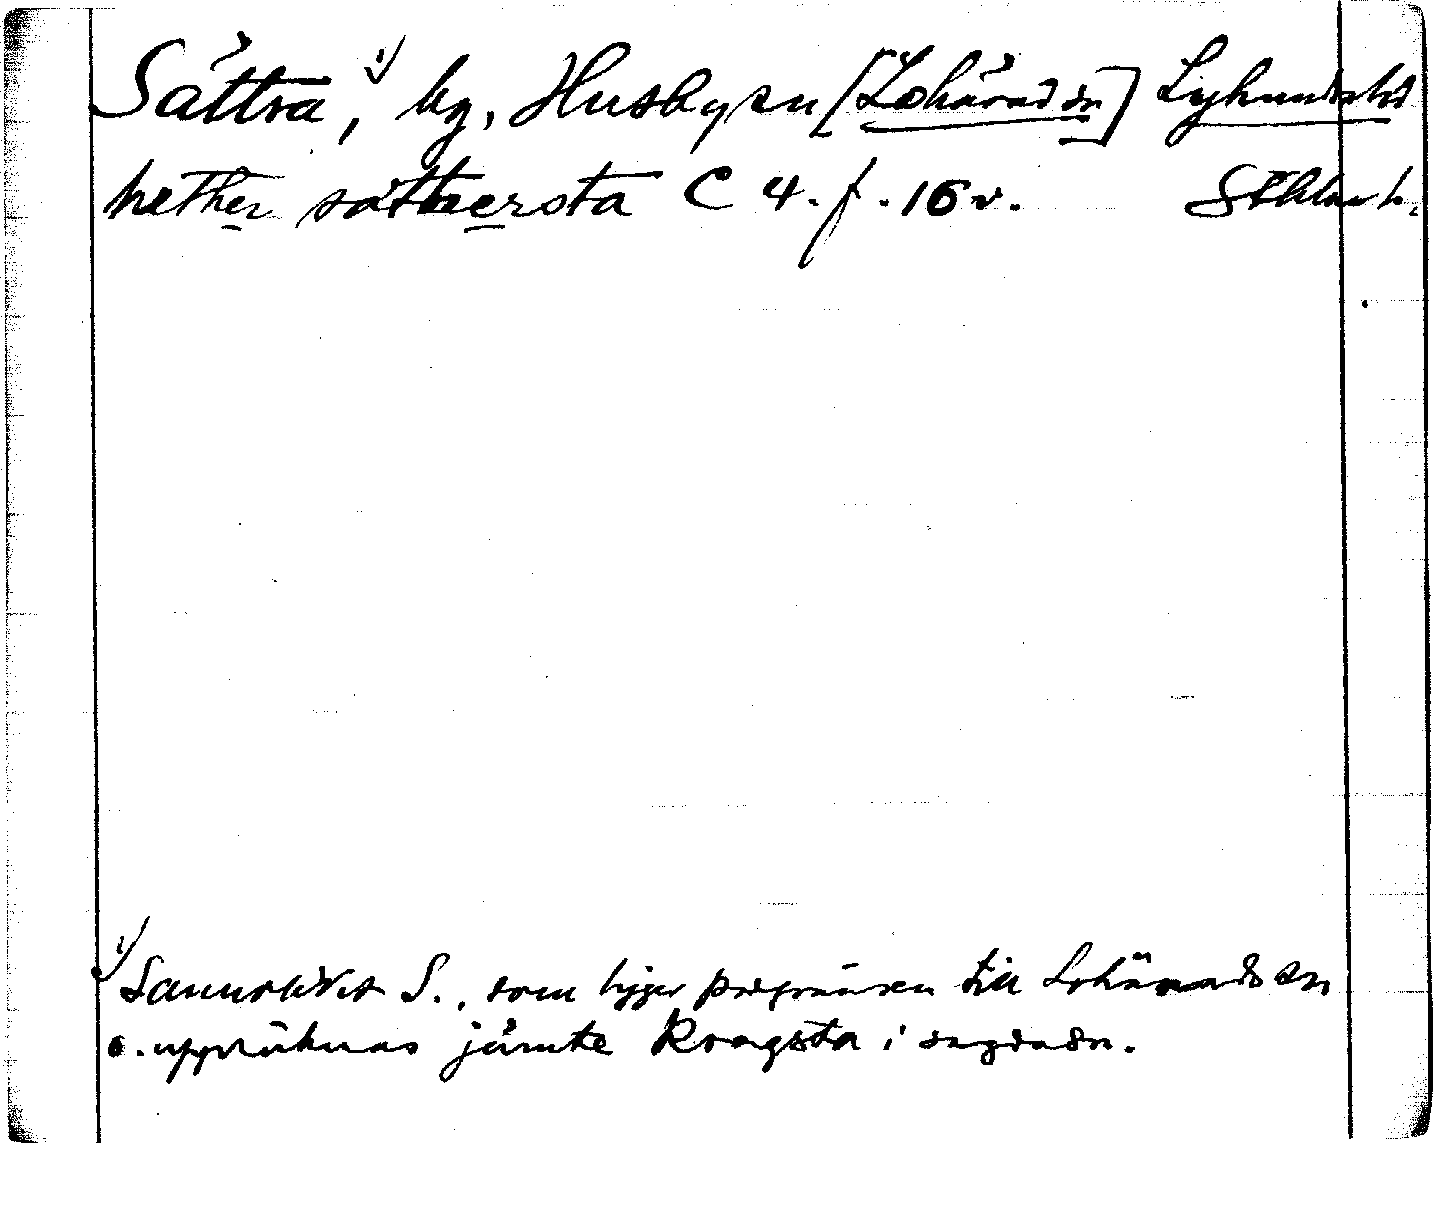 Sättra,¹⁾ by, Husby sn [Lohärad sn] Lyhundrahd
nether sættnersta C 4. f. 16 v. Sthlms l.
¹⁾ Sannolikt S., som ligger på gränsen till Lohärads sn
o. uppräknas jämte Kragsta i sagda sn.